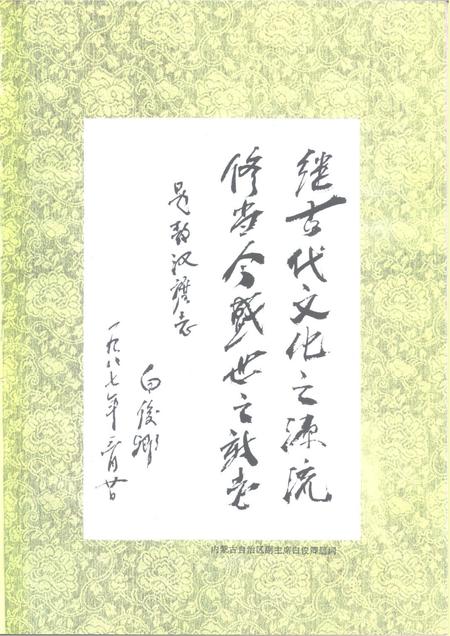 继古代文化之源流
修当今盛世之新志
题敖汉旗志
白俊卿
一九八七年三月廿
内蒙古自治区副主席白俊卿题词